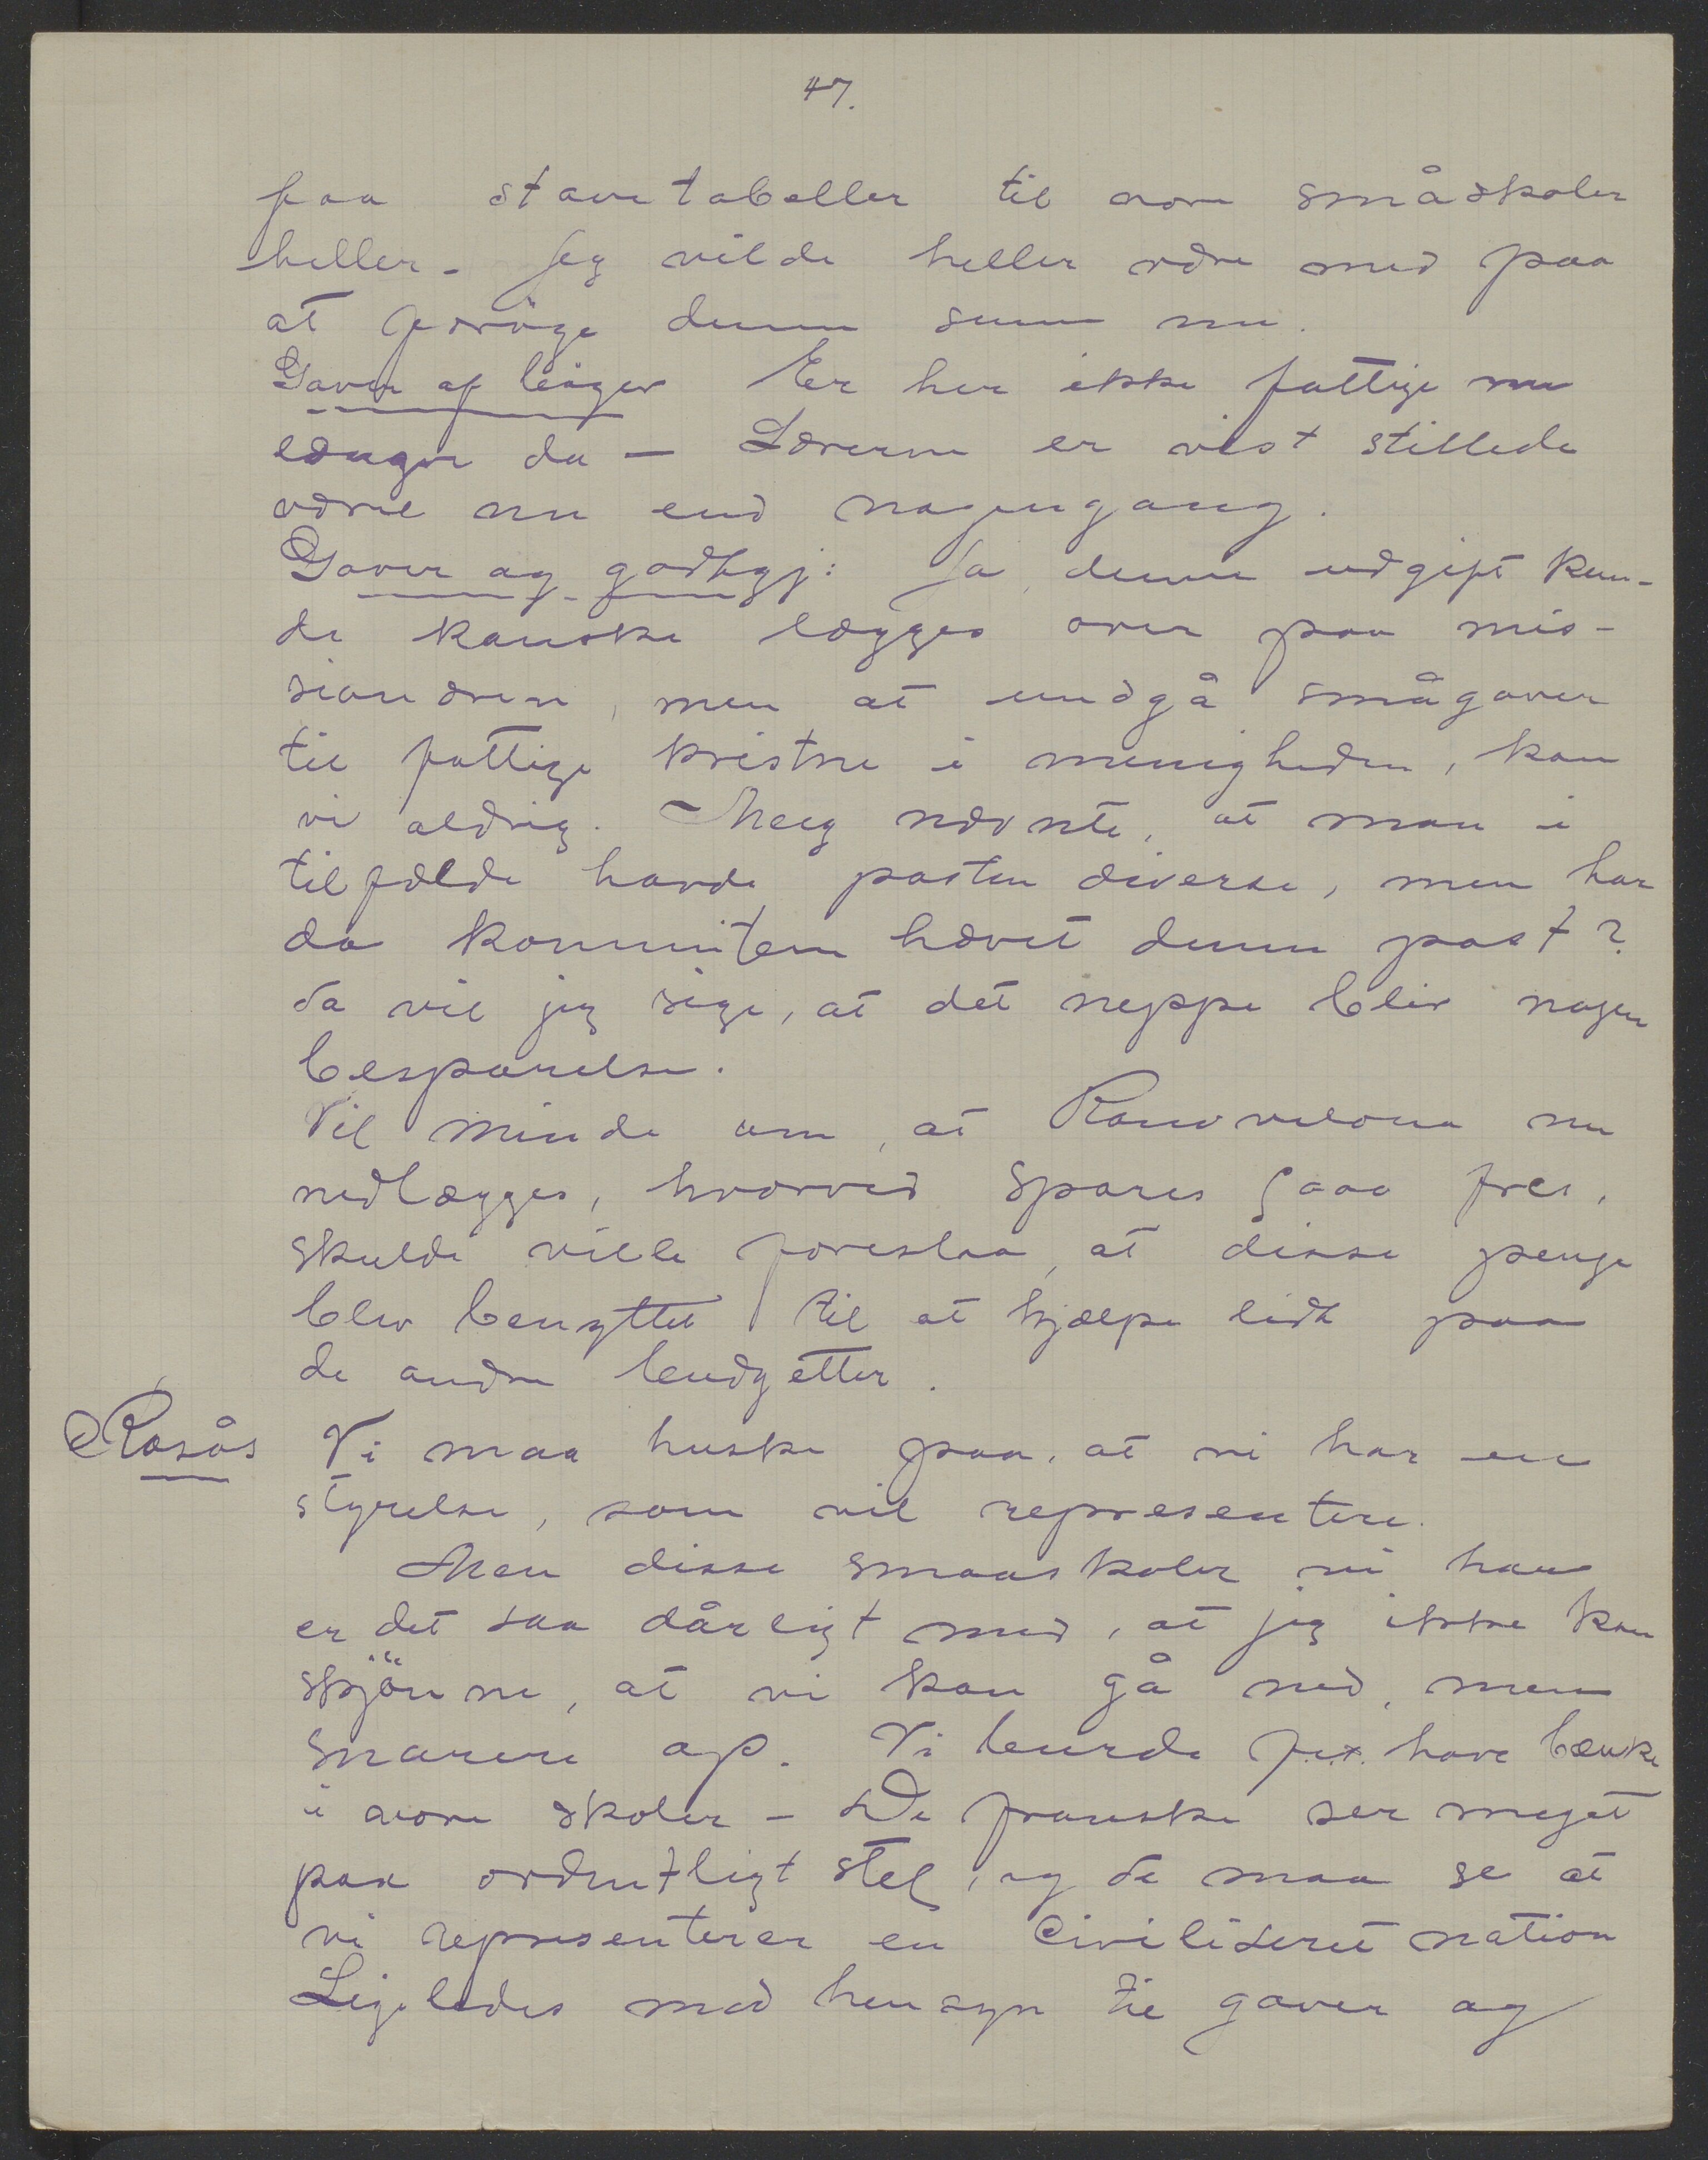 47.
faa stavetabeller til vore småskoler
heller. Jeg vilde heller være med paa
at foröge denne sum nu.
Gaver af böger Er her ikke fattige nu
længer da — Lærerne er vist stillede
værre nu end nogengang.
Gaver og godtgj: Ja, denne udgift kun-
de kanske lægges over paa mis-
sionæren, men at undgå smågaver
til fattige kristne i menigheden, kan
vi aldrig. Meeg nævnte, at man i
tilfælde havde posten diverse, men har
da kommiteen hævet denne post?
Da vil jeg sige, at det neppe blir nogen
besparelse.
Vil minde om, at Ranovelona nu
nedlægges, hvorved spares 5000 frcs.,
skulde ville foreslaa, at disse penge
blev benyttet til at hjælpe lidt paa
de andre budgetter.
Rosås Vi maa huske paa, at vi har en
styrelse, som vil representere.
Men disse smaaskoler vi have
er det saa dårligt med, at jeg ikke kan
skjönne, at vi kan gå ned, men
snarere op. Vi burde f.ex. have bænke
i vore skoler – De franske ser meget
paa ordentligt stel, og de maa se at
vi representerer en civiliseret nation
Ligeledes med hensyn til gaver og